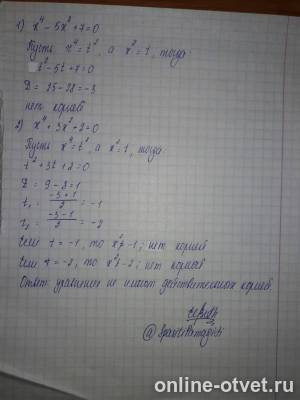 1) x⁴ - 5x² + 7 = 0
Пусть x⁴ = t², а x² = t, тогда:
t² - 5t + 7 = 0
D = 25 - 28 = -3
нет корней
2) x⁴ + 3x² + 2 = 0
Пусть x⁴ = t², а x² = t, тогда
t² + 3t + 2 = 0
D = 9 - 8 = 1
t₁ = (-3+1)/2 = -1
t₂ = (-3-1)/2 = -2
Если t = -1, то x² ≠ -1; нет корней
Если t = -2, то x² ≠ -2; нет корней
Ответ: уравнения не имеют действительных корней.
online-otvet.ru